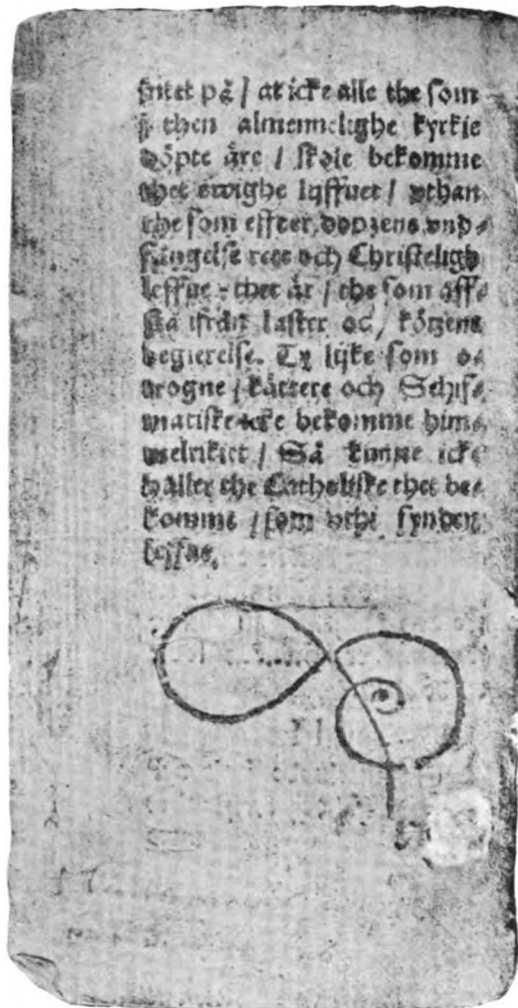 på / at icke alle the som
then almennelighe kyrkie
döpte äre / skole bekomme
thet ewighe lijffuet / vthan
the som effter dopzens vnd⸗
fångelse rett och Christeligh
leffue : thet är / the som aff⸗
stå ifrån laster och kötzens
begierelse. Ty lijke som o⸗
trogne / kättere och Schis⸗
matiske icke bekomme him⸗
melriket / Så kunne icke
häller the Catholiske thet be⸗
komme / som vthi synden
leffue.